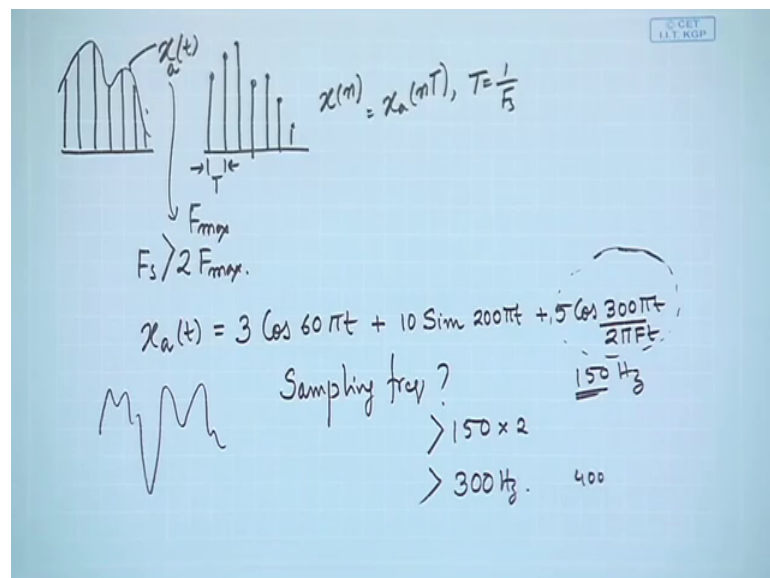 © CET
I.I.T. KGP
xₐ(t)
x(n) = xₐ(nT), T = 1/Fs
T
Fmax
Fs > 2 Fmax.
xₐ(t) = 3 Cos 60πt + 10 Sin 200πt + 5 Cos 300πt
2πFt.
Sampling freq ?
150 Hz
> 150 × 2
> 300 Hz. 400